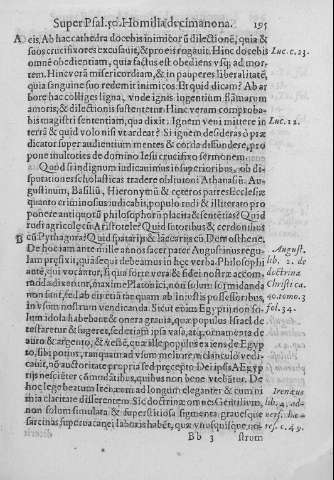 Super Psal. 50. Homilia decimanona. 195
A eis. Ab hac cathedra docebis inimicorũ dilectionẽ, quia &
suos crucifixores excusauit, & pro eis rogauit. Hinc docebis Luc. c. 23.
omnẽ obedientiam, quia factus est obediens vsq; ad mor-
tem. Hinc verã misericordiam, & in pauperes liberalitatẽ,
quia sanguine suo redemit inimicos. Et quid dicam? Ab ar
bore hac colliges ligna, vnde ignis ingentium flãmarum
amoris, & dilectionis sustentetur. Hinc veram comproba-
bis magistri sententiam, qua dixit: Ignem veni mittere in
terrã & quid volo nisi vt ardeat? Si ignem desideras ò præ Luc. 12.
dicator super audientium mentes & corda diffundere, pro
pone multoties de domino Iesu crucifixo sermonem.
Quòd si indignum iudicamus in superioribus, ob di-
sputationes scholasticas tradere obliuioni Athanasiũ, Au-
gustinum, Basiliũ, Hieronymũ & cęteros patres Ecclesiæ
quanto criminosius iudicabis, populo rudi & illiterato pro
ponere antiquorũ philosophorũ placita & sentẽtias? Quid
rusti agricolę cũ Aristotele? Quid sutoribus & cerdonibus
B cũ Pythagora? Quid & lacdarijs cũ Demosthene.
De hoc iam ante mille annos sacer pater Augustinus regu- August.
lam prefixit, quasequi debeamus in hęc verba. Philosophi lib. 2. de
autẽ, qui vocãtur, si qua fortè vera & fidei nostræ accom- doctrina
modata dixerunt, maxime Platonici, non solum formidanda Christica.
non sunt, sed ab eis etiã tãquam ab iniustis possessoribus, 40. tomo. 3
in vsum nostrum vendicanda. Sicut enim Egyptij non so- fol. 34.
lum idola habebant & onera grauia, quæ populus Israel de
testaretur & fugeret, sed etiam ipsa vasa, atq; ornamenta de
auro & argento, & vestẽ, quæ ille populus exiens de Egyp
to, sibi potius, tanquam ad vsum meliorem clanculò vẽdi-
cauit, nõ auctoritate propria sed precepto Dei ipsis Aegyp
tijs nescienter cõmodantibus, quibus non bene vtebãtur. De
hoc lege beatum Irenæum ad longum eleganter & cum ni Ireneus
mia claritate disserentem. Sic doctrinæ omnes Gentilium, lib. 4. ad-
non solum simulata & superstitiosa figmenta grauesque vers. hæ-
sarcinas superuacanei laboris habẽt, quæ vnusquisque no- res c. 49.
Bb 3 strum